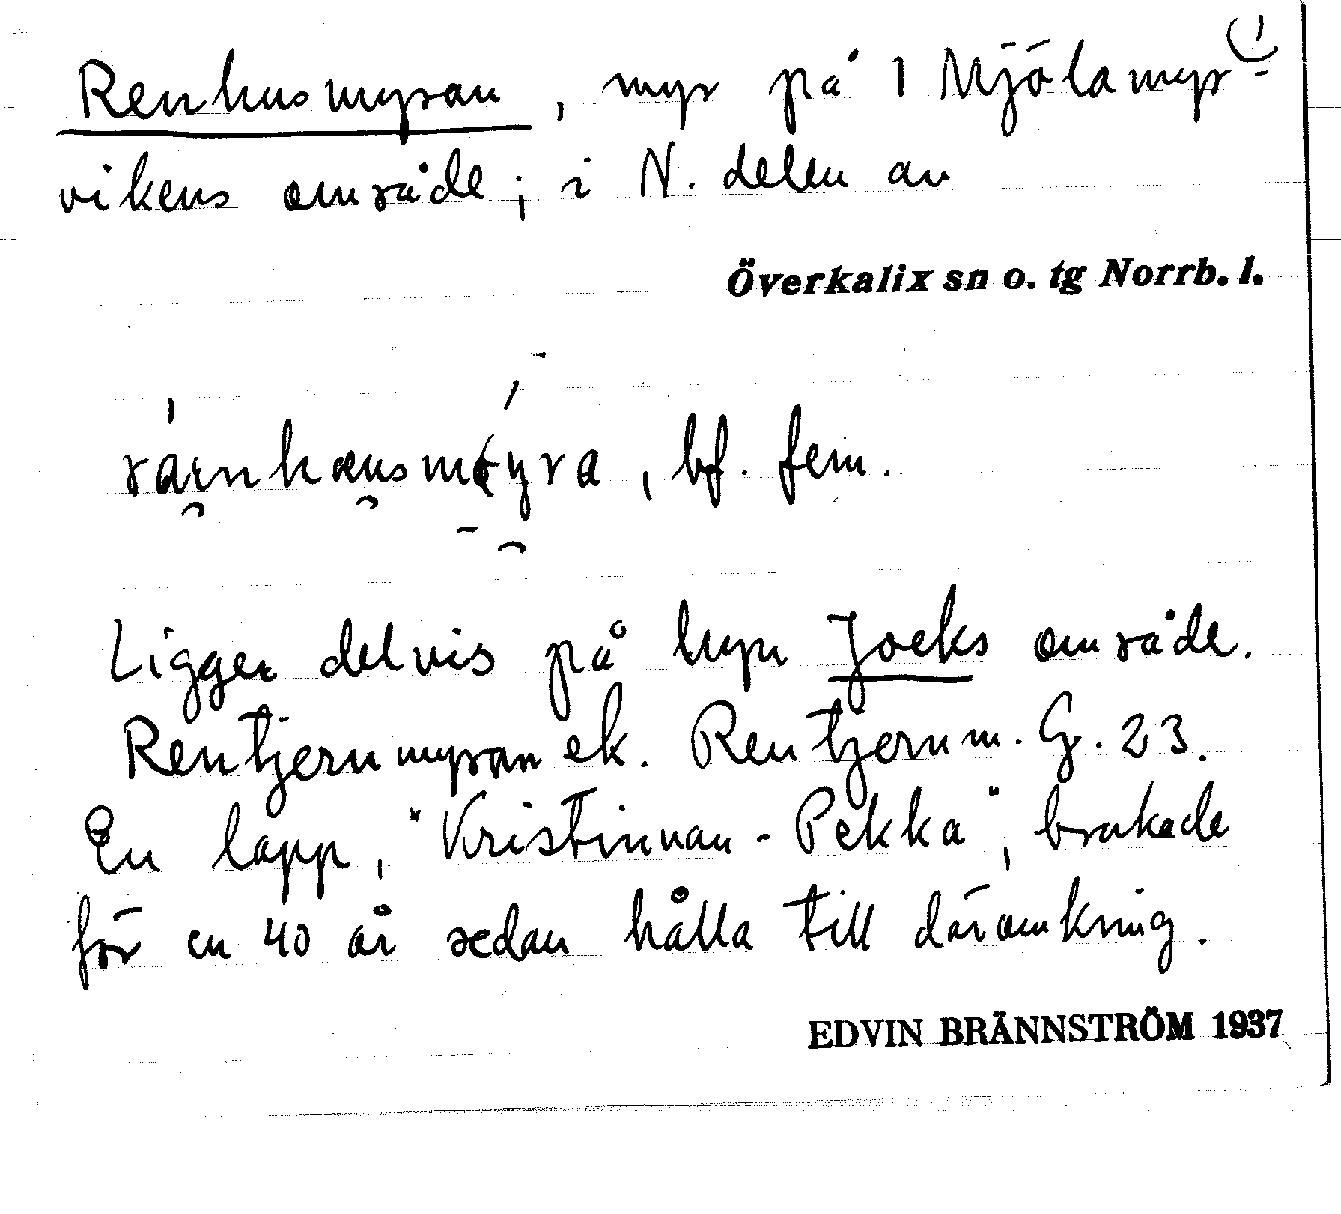 Renhusmyran, myr på 1 Mjölamyr-
vikens område; i N. delen av
Överkalix sn o. tg Norrb. l.
bf. fem.
Ligger delvis på hyn Jocks område.
Rentjernmyran ek. Rentjernm. G. 23.
En lapp, "Kristinnan-Pekka", brukade
för en 40 år sedan hålla till däromkring.
EDVIN BRÄNNSTRÖM 1937